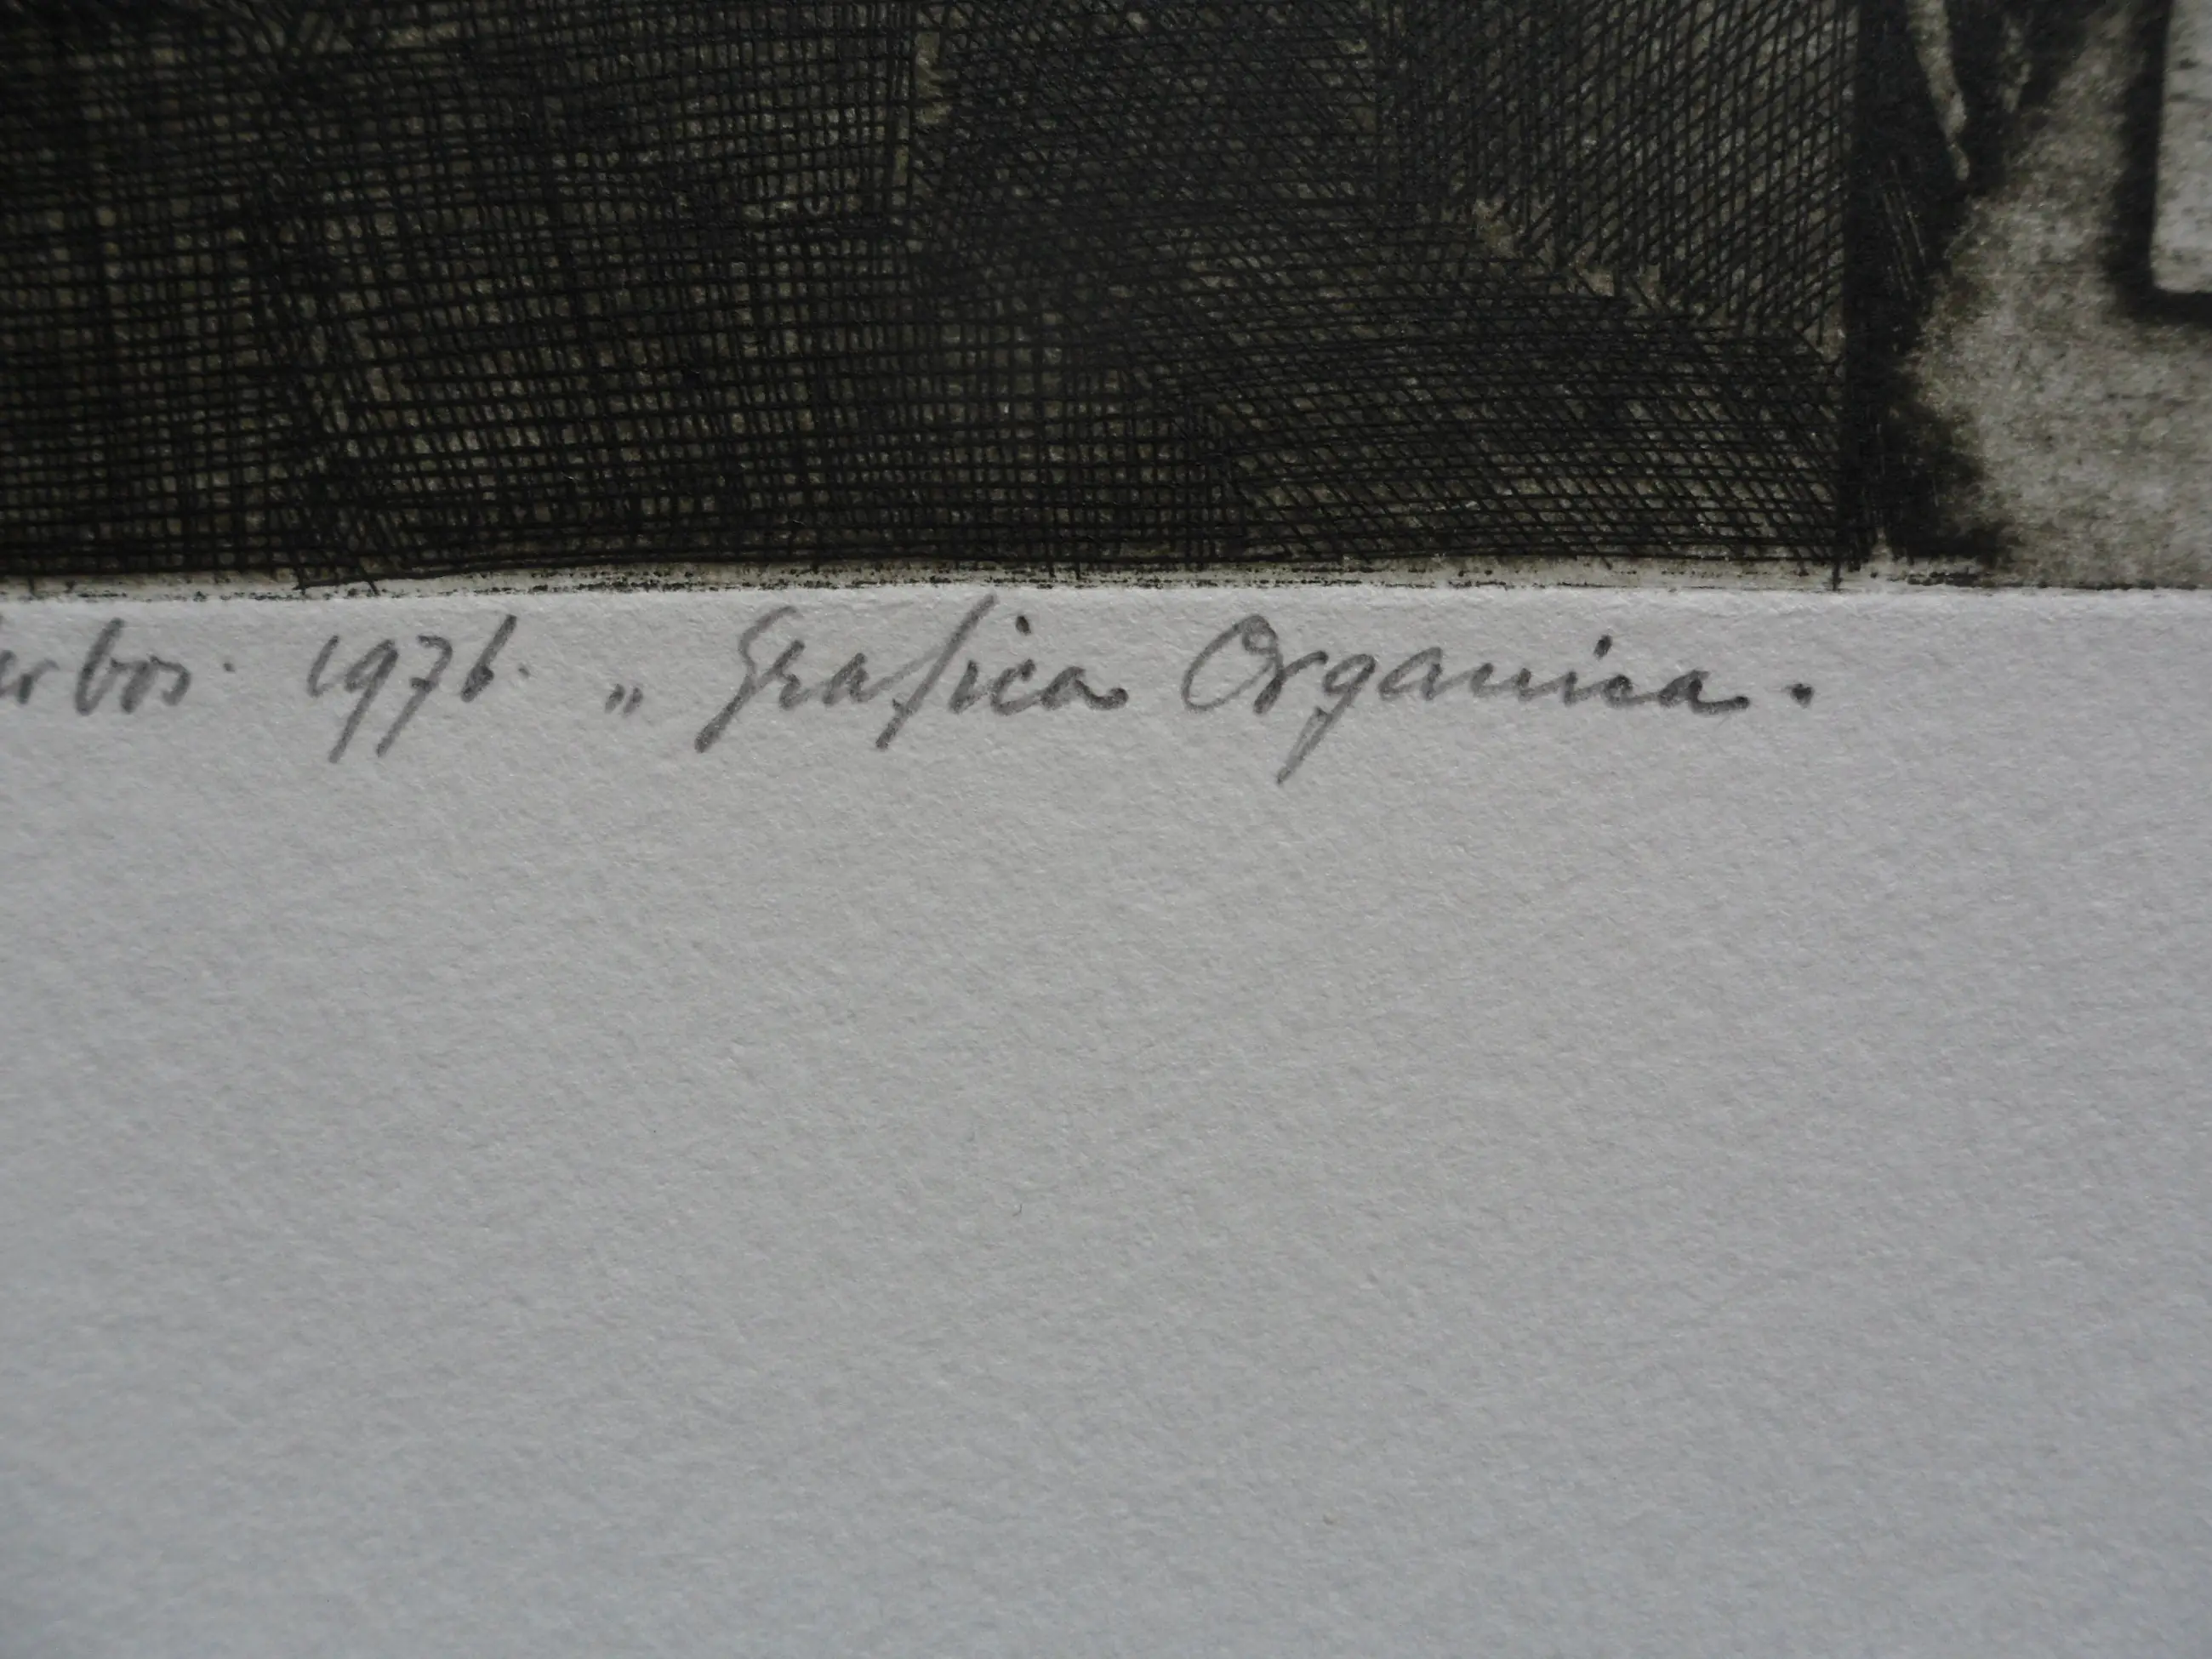 erbos. 1976. „ Grafica Organica.